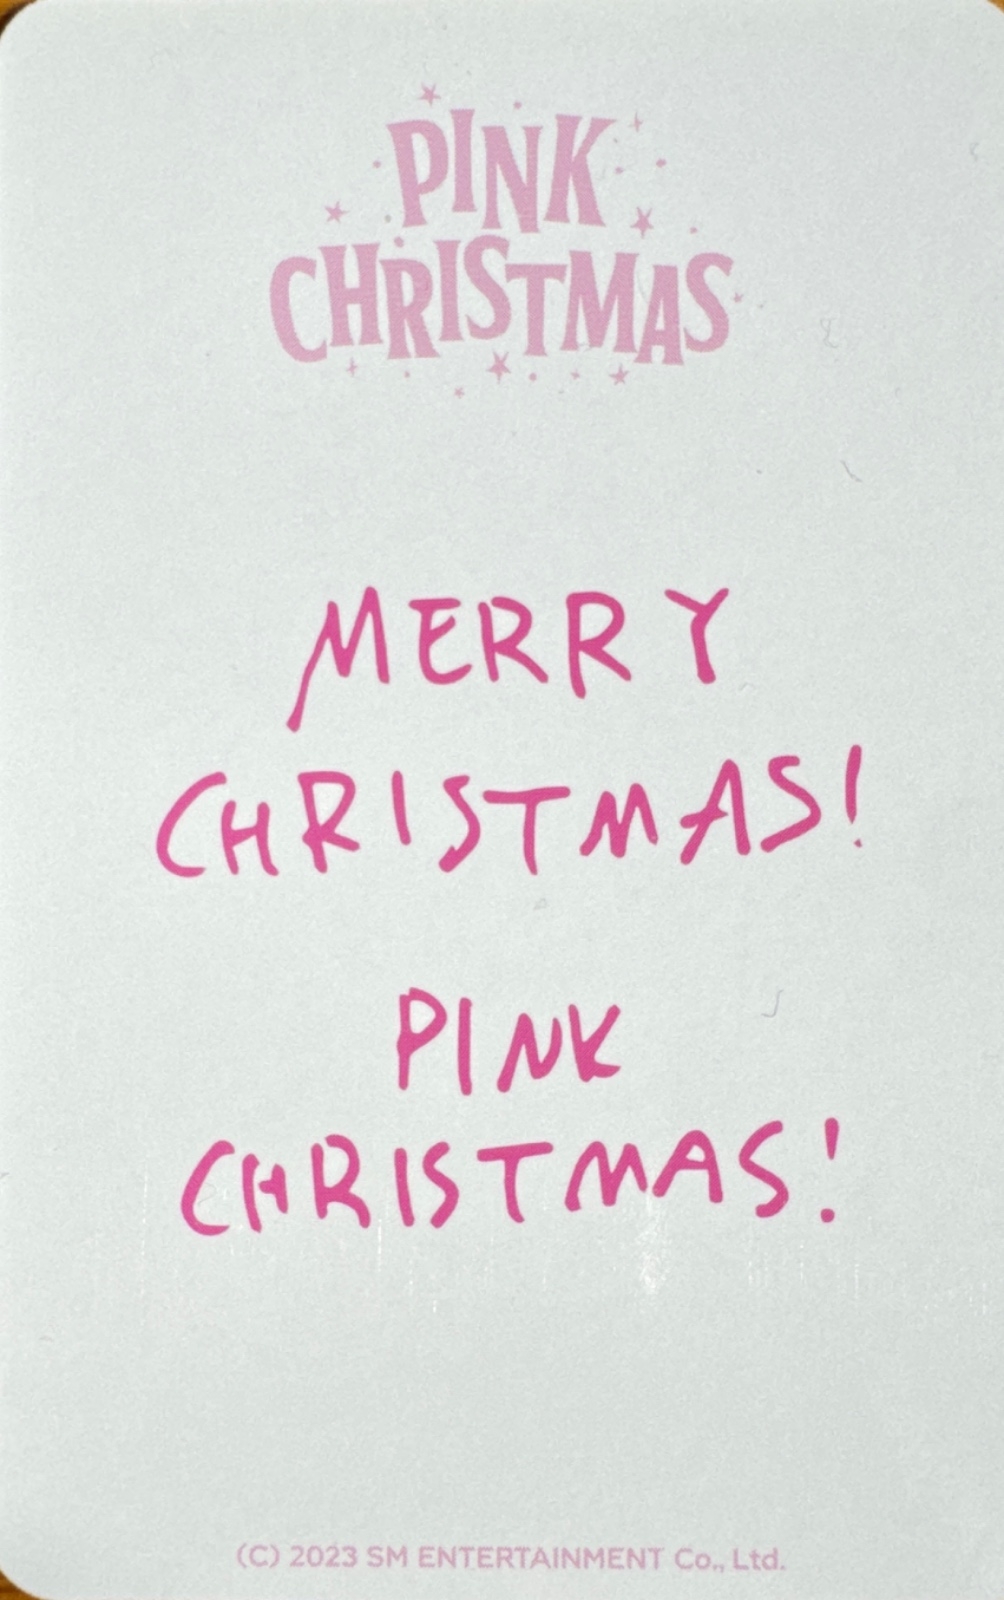 PINK
CHRISTMAS
MERRY
CHRISTMAS!
PINK
CHRISTMAS!
(C) 2023 SM ENTERTAINMENT Co., Ltd.